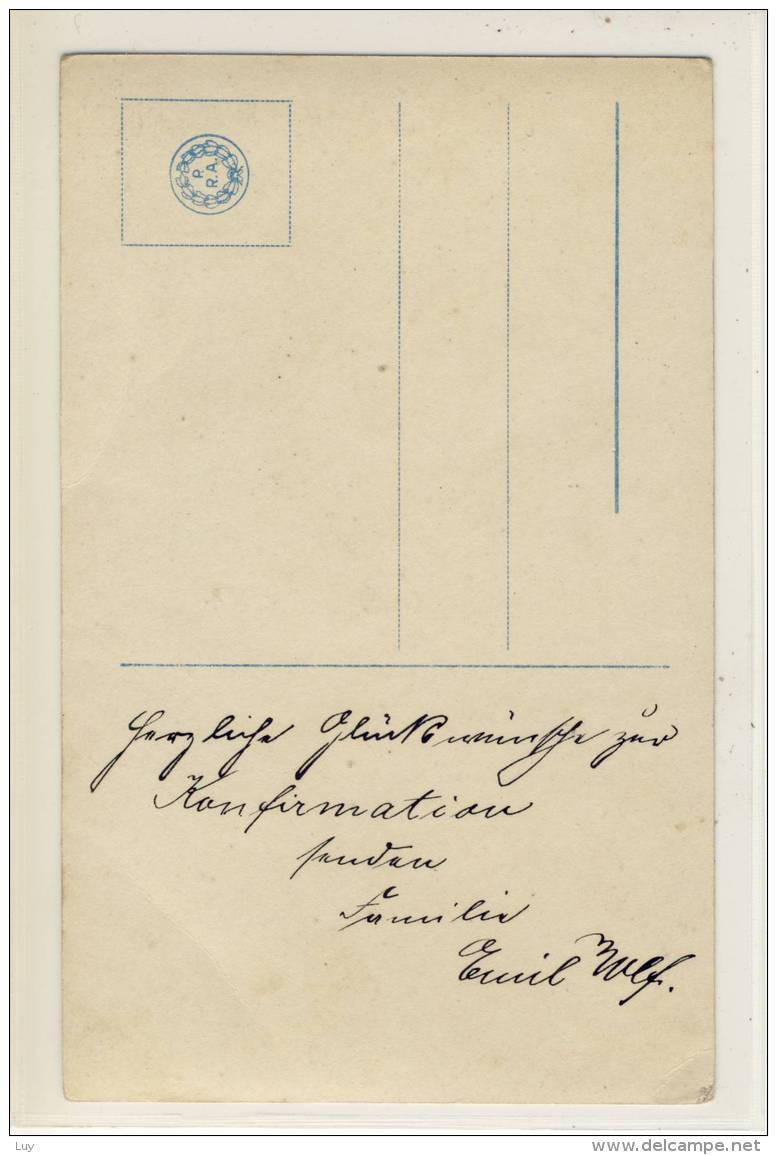 P.
R.A.
Herzliche Glückwünsche zur
Konfirmation
senden
Familie
Emil Wolf.
Luy
delcampe.net